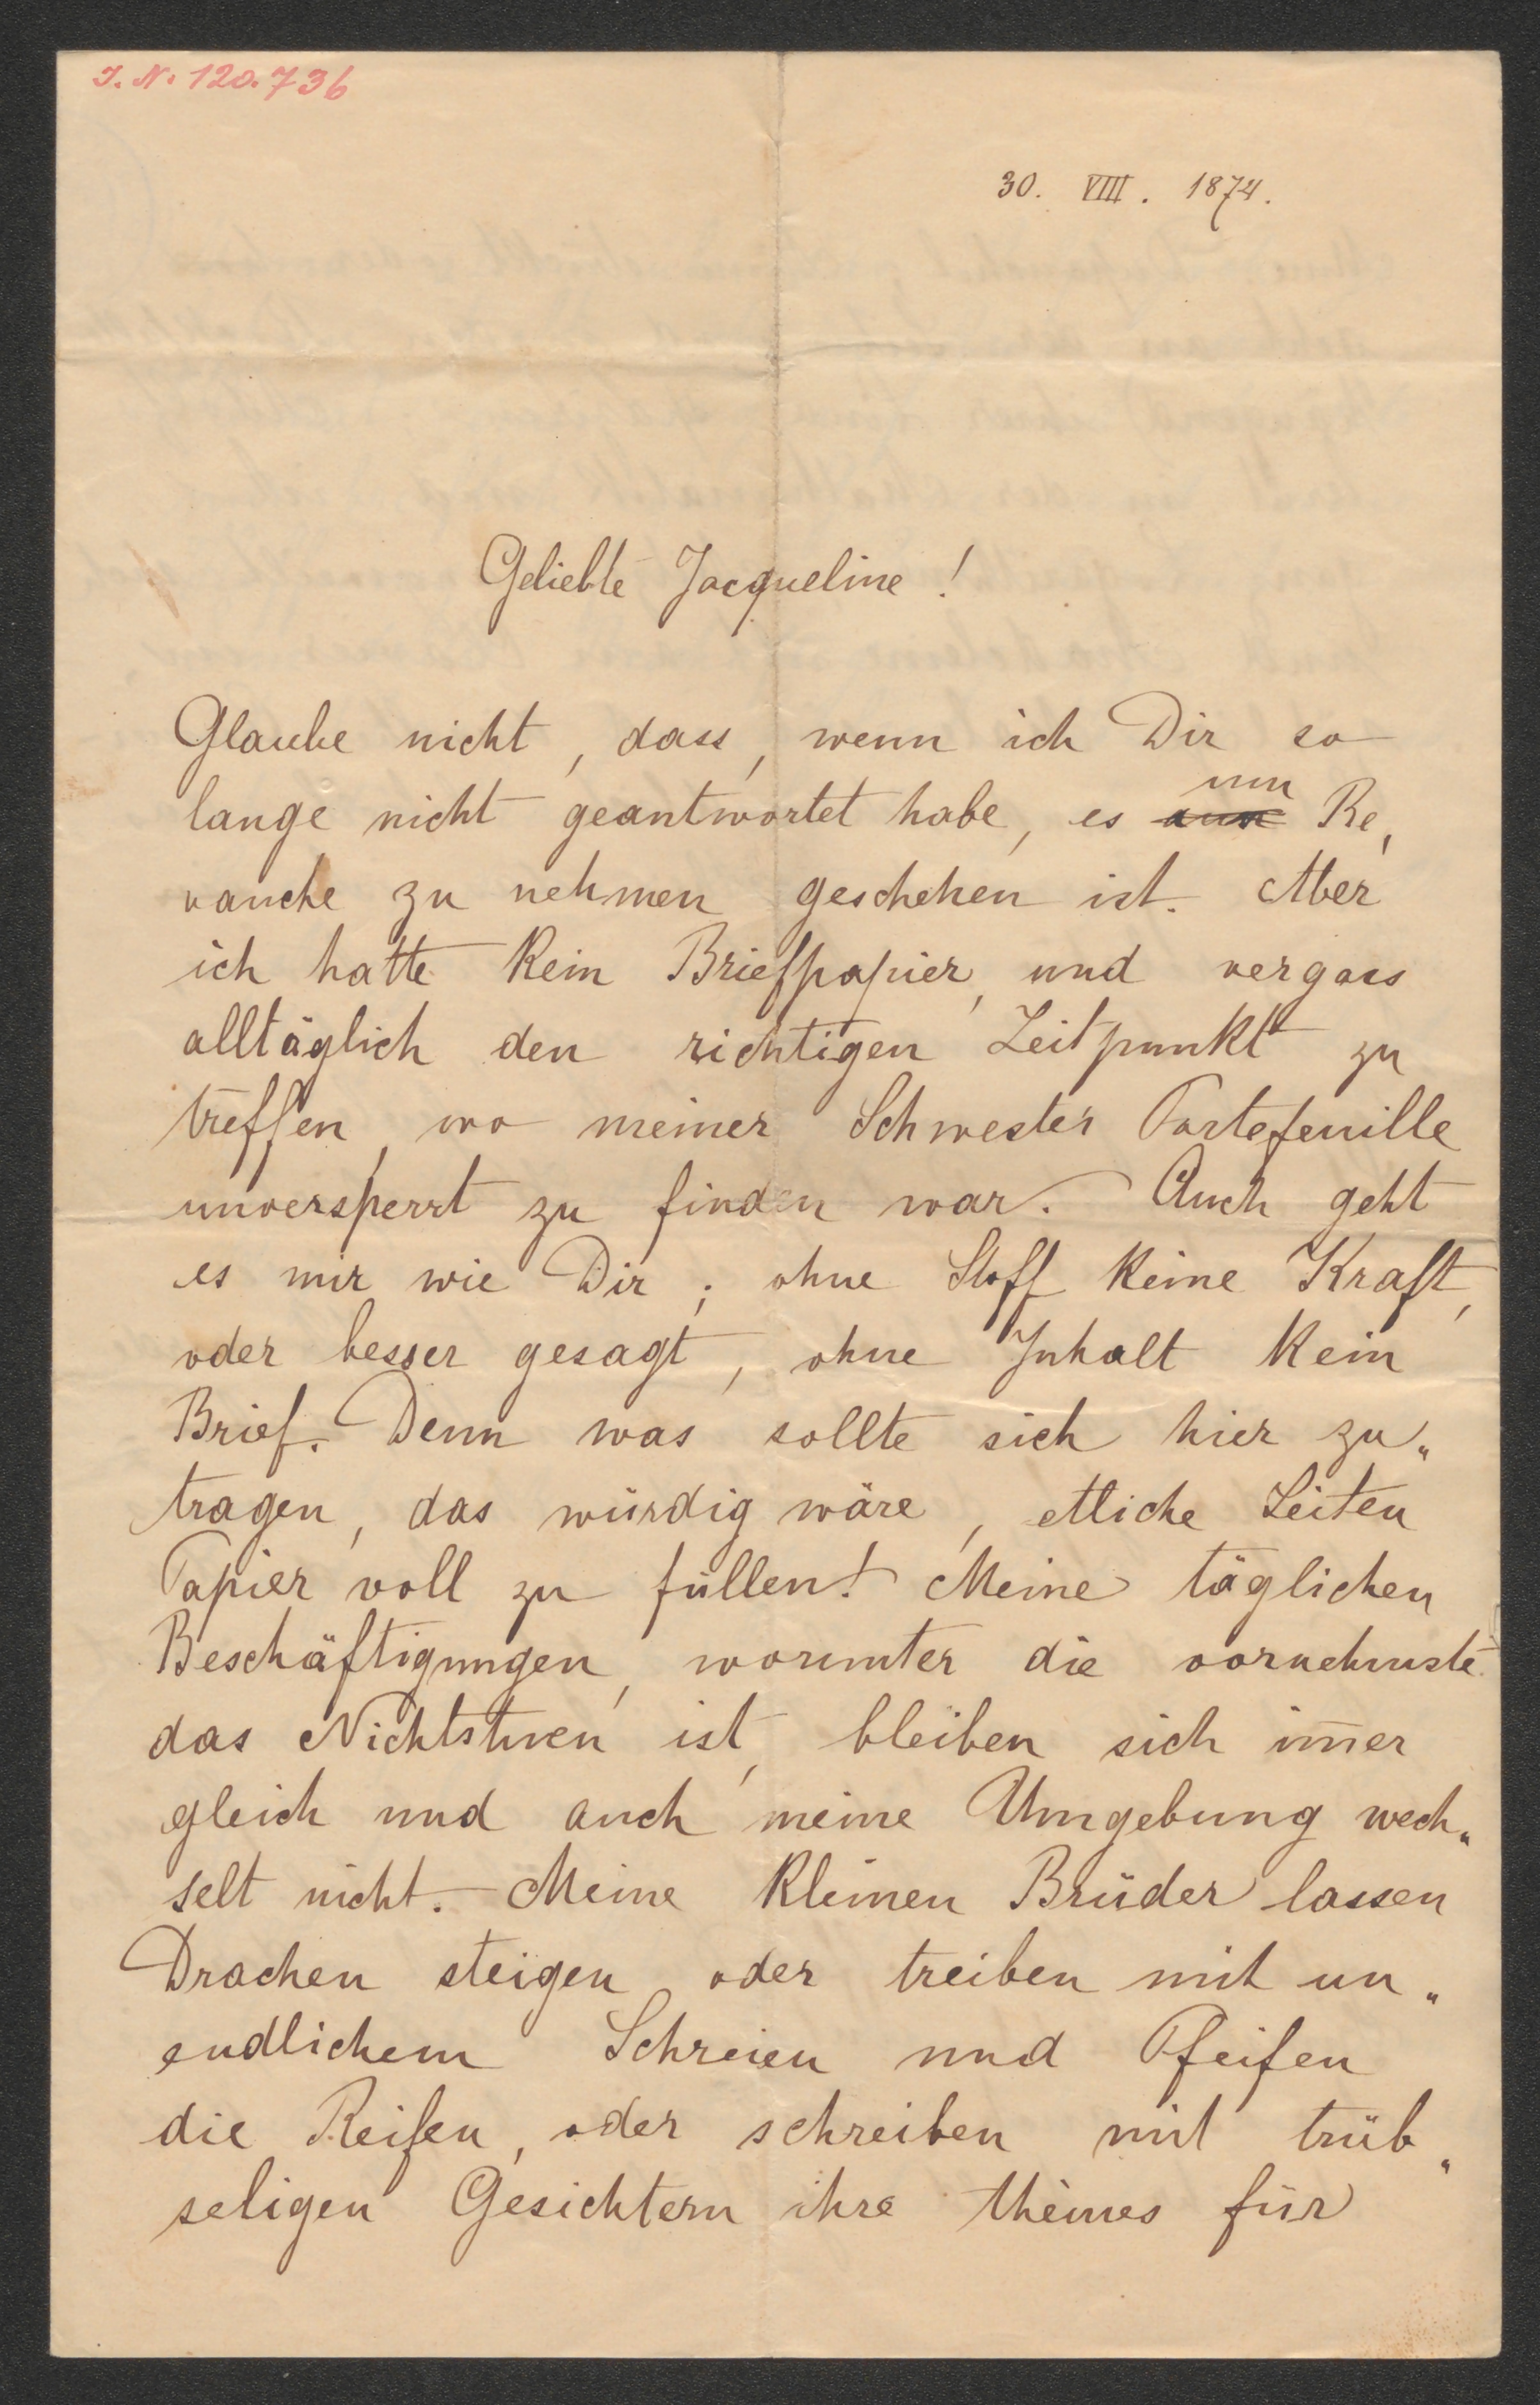 J. N. 120.736
30. VIII. 1874.
Geliebte Jacqueline!
Glaube nicht, dass, wenn ich Dir so
lange nicht geantwortet habe, es um Re„
vanche zu nehmen geschehen ist. Aber
ich hatte kein Briefpapier, und vergass
alltäglich den richtigen Zeitpunkt zu
treffen, wo meiner Schwester Portefeuille
unversperrt zu finden war. Auch geht
es mir wie Dir; ohne Stoff keine Kraft,
oder besser gesagt, ohne Inhalt kein
Brief. Denn was sollte sich hier zu„
tragen, das würdig wäre, etliche Seiten
Papier voll zu füllen! Meine täglichen
Beschäftigungen, worunter die vornehmste
das Nichtstuen ist, bleiben sich im̅er
gleich und auch meine Umgebung wech„
selt nicht. – Meine kleinen Brüder lassen
Drachen steigen oder treiben mit un„
endlichem Schreien und Pfeifen
die Reifen, oder schreiben mit trüb„
seligen Gesichtern ihre thèmes für